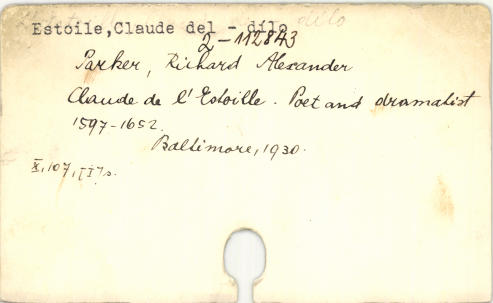 Estoile,Claude del - dílo
2-112843
Parker, Richard Alexander
Claude de l'Estoille. Poet and dramatist
1597-1652.
Baltimore, 1930.
X, 107, [I] s.